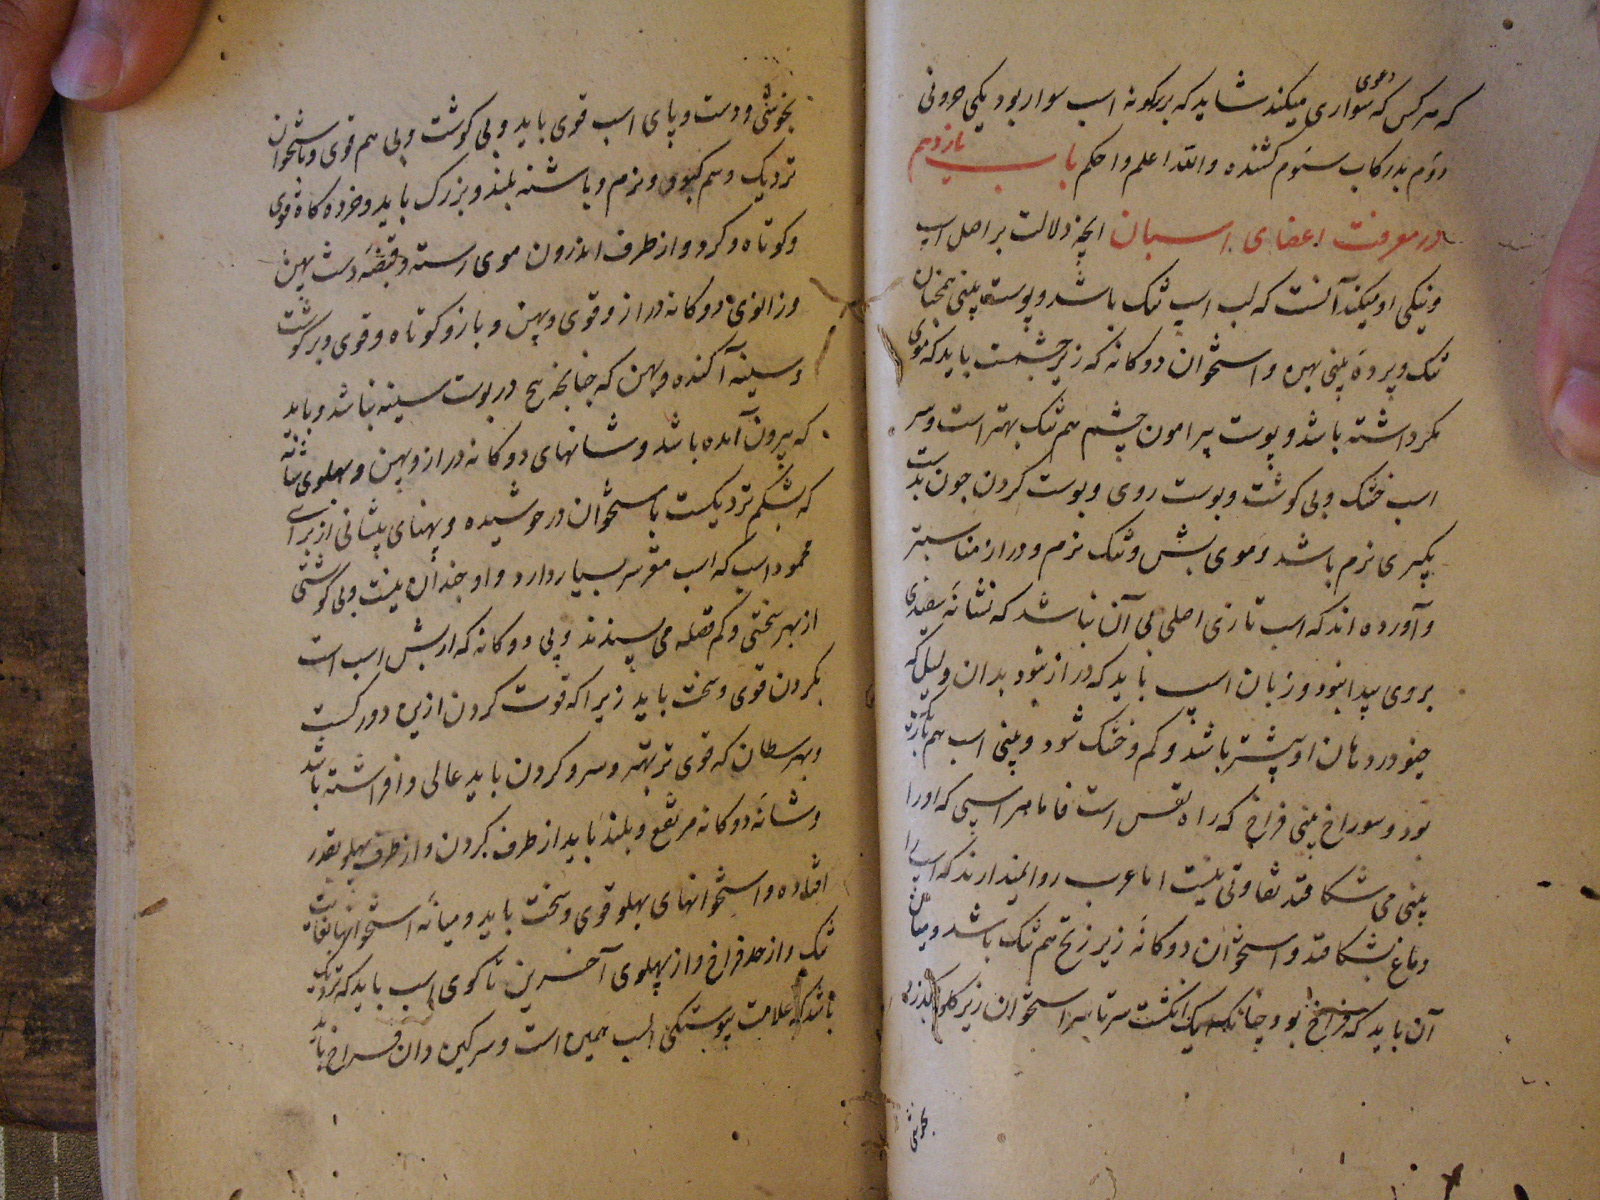 که هر کس که دعوی سواری میکند شاید که بر هرکونه اسب سوار بود یکی حرونی
دوم بدرکاب سوم کشنده والله اعلم واحکم باب یازدهم
در معرفت اعضای اسبان انچه دلالت بر اصل اسب
ونیکی او میکند آنست که لب اسب تنک باشد و پوست بینی همچنان
تنک و پردهٔ بینی بهره و استخوان دوکانه که زیر چشمست باید که موی
کرد اشته باشد و پوست پیرامون چشم هم تنک بهتر است و سر
اسب خشک و بی کوشت و پوست روی و پوست کردن چون بدست
بکیری نرم باشد و موی بش و تنک نرم و دراز مناسبتر
و آورده اند که اسب تازی اصلی بی آن نباشد که نشانهٔ سفیدی
بر وی پیدا بود و زبان اسب باید که دراز بود بدان دلیل که
خیو در دهان او بیشتر باشد و کم و خشک شود و بینی اسب هم
بود و سوراخ بینی فراخ که راه نفس است فاما هر اسبی که او را
بینی می شکافتد تفاوتی نیست اما عرب روا نمیدارند که اسب را
دماغ بشکافتد و استخوان دوکانهٔ زیر زنخ هم تنک باشد و میان
آن باید که فراخ بود چنانکه یک انکشت سر تا سر استخوان زیر کلو بکذرد
بخوشی
بخوشی و دست و پای اسب قوی باید و بی کوشت و پی هم قوی و باستخوان
نزدیک و سم کبود و نرم و پاشنه بلند و بزرک باید و خرده کاه قوی
و کوتاه و کرد و از طرف اندرون موی رسته و قبضهٔ دست پهن
و زانوی دوکانه دراز و قوی و پهن و بازو کوتاه و قوی و پر کوشت
و سینه آکنده و پهن که چنانچه هیچ در پوست سینه نباشد و باید
که بیرون آمده باشد و شانهای دوکانه دراز و پهن و پهلوی شانه
که بشکم نزدیکست باستخوان در خوشیده و پهنای پیشانی از برای
محمود است که اسب مغز سر بسیار دارد و او چندان نیست و بی کوشتی
از بهر سختی و کم فضله می پسندند و پی دوکانه که از بش اسب است
بکردن قوی و سخت باید زیرا که قوت کردن ازین دو رکست
و بهر سطان که قوی تر بهتر و سر و کردن باید عالی و افراشته باشد
و شانهٔ دوکانه مرتفع و بلند باید از طرف کردن و از طرف پهلو بقدر
افتاده و استخوانهای پهلو قوی و سخت باید و میانهٔ استخوانها بغایت
تنک و از حد فراخ و از پهلوی آخرین تا کوی اسب باید که نزدیک
باشد که علامت پیوستکی اسب همین است و سرکین دان فراخ باید